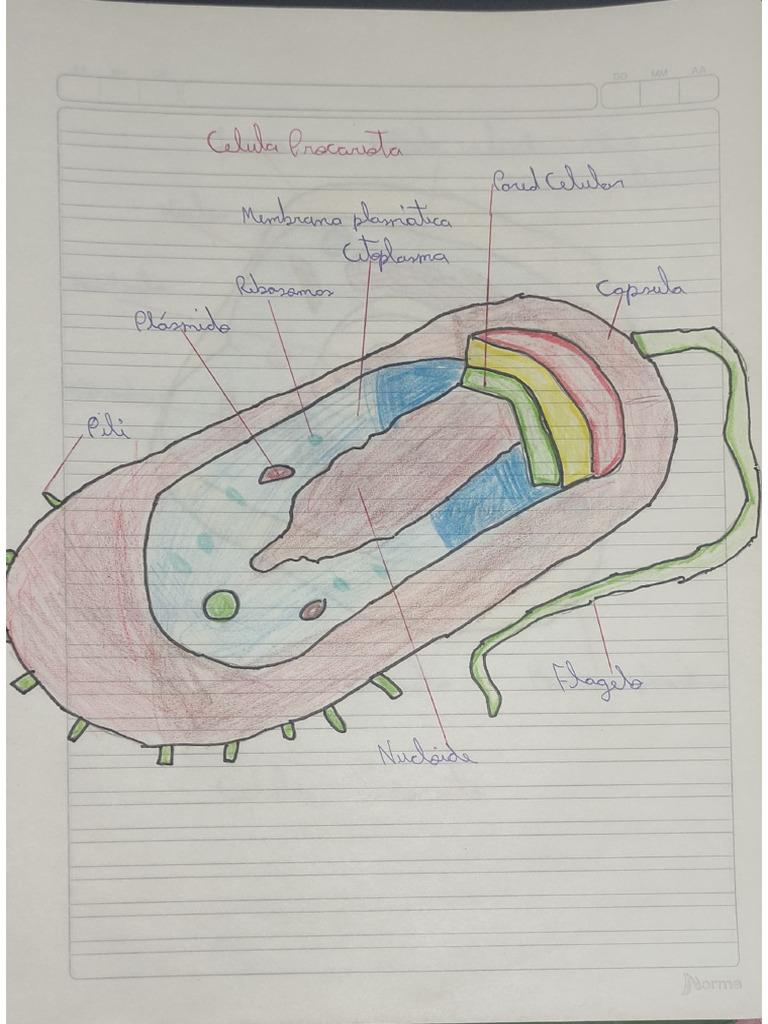 AA
MM
DD
Celula Procariota
Pared Celular
Membrana plasmática
Citoplasma
Ribosomas
Capsula
Plásmido
Pili
Flagelo
Nucloide
Norma